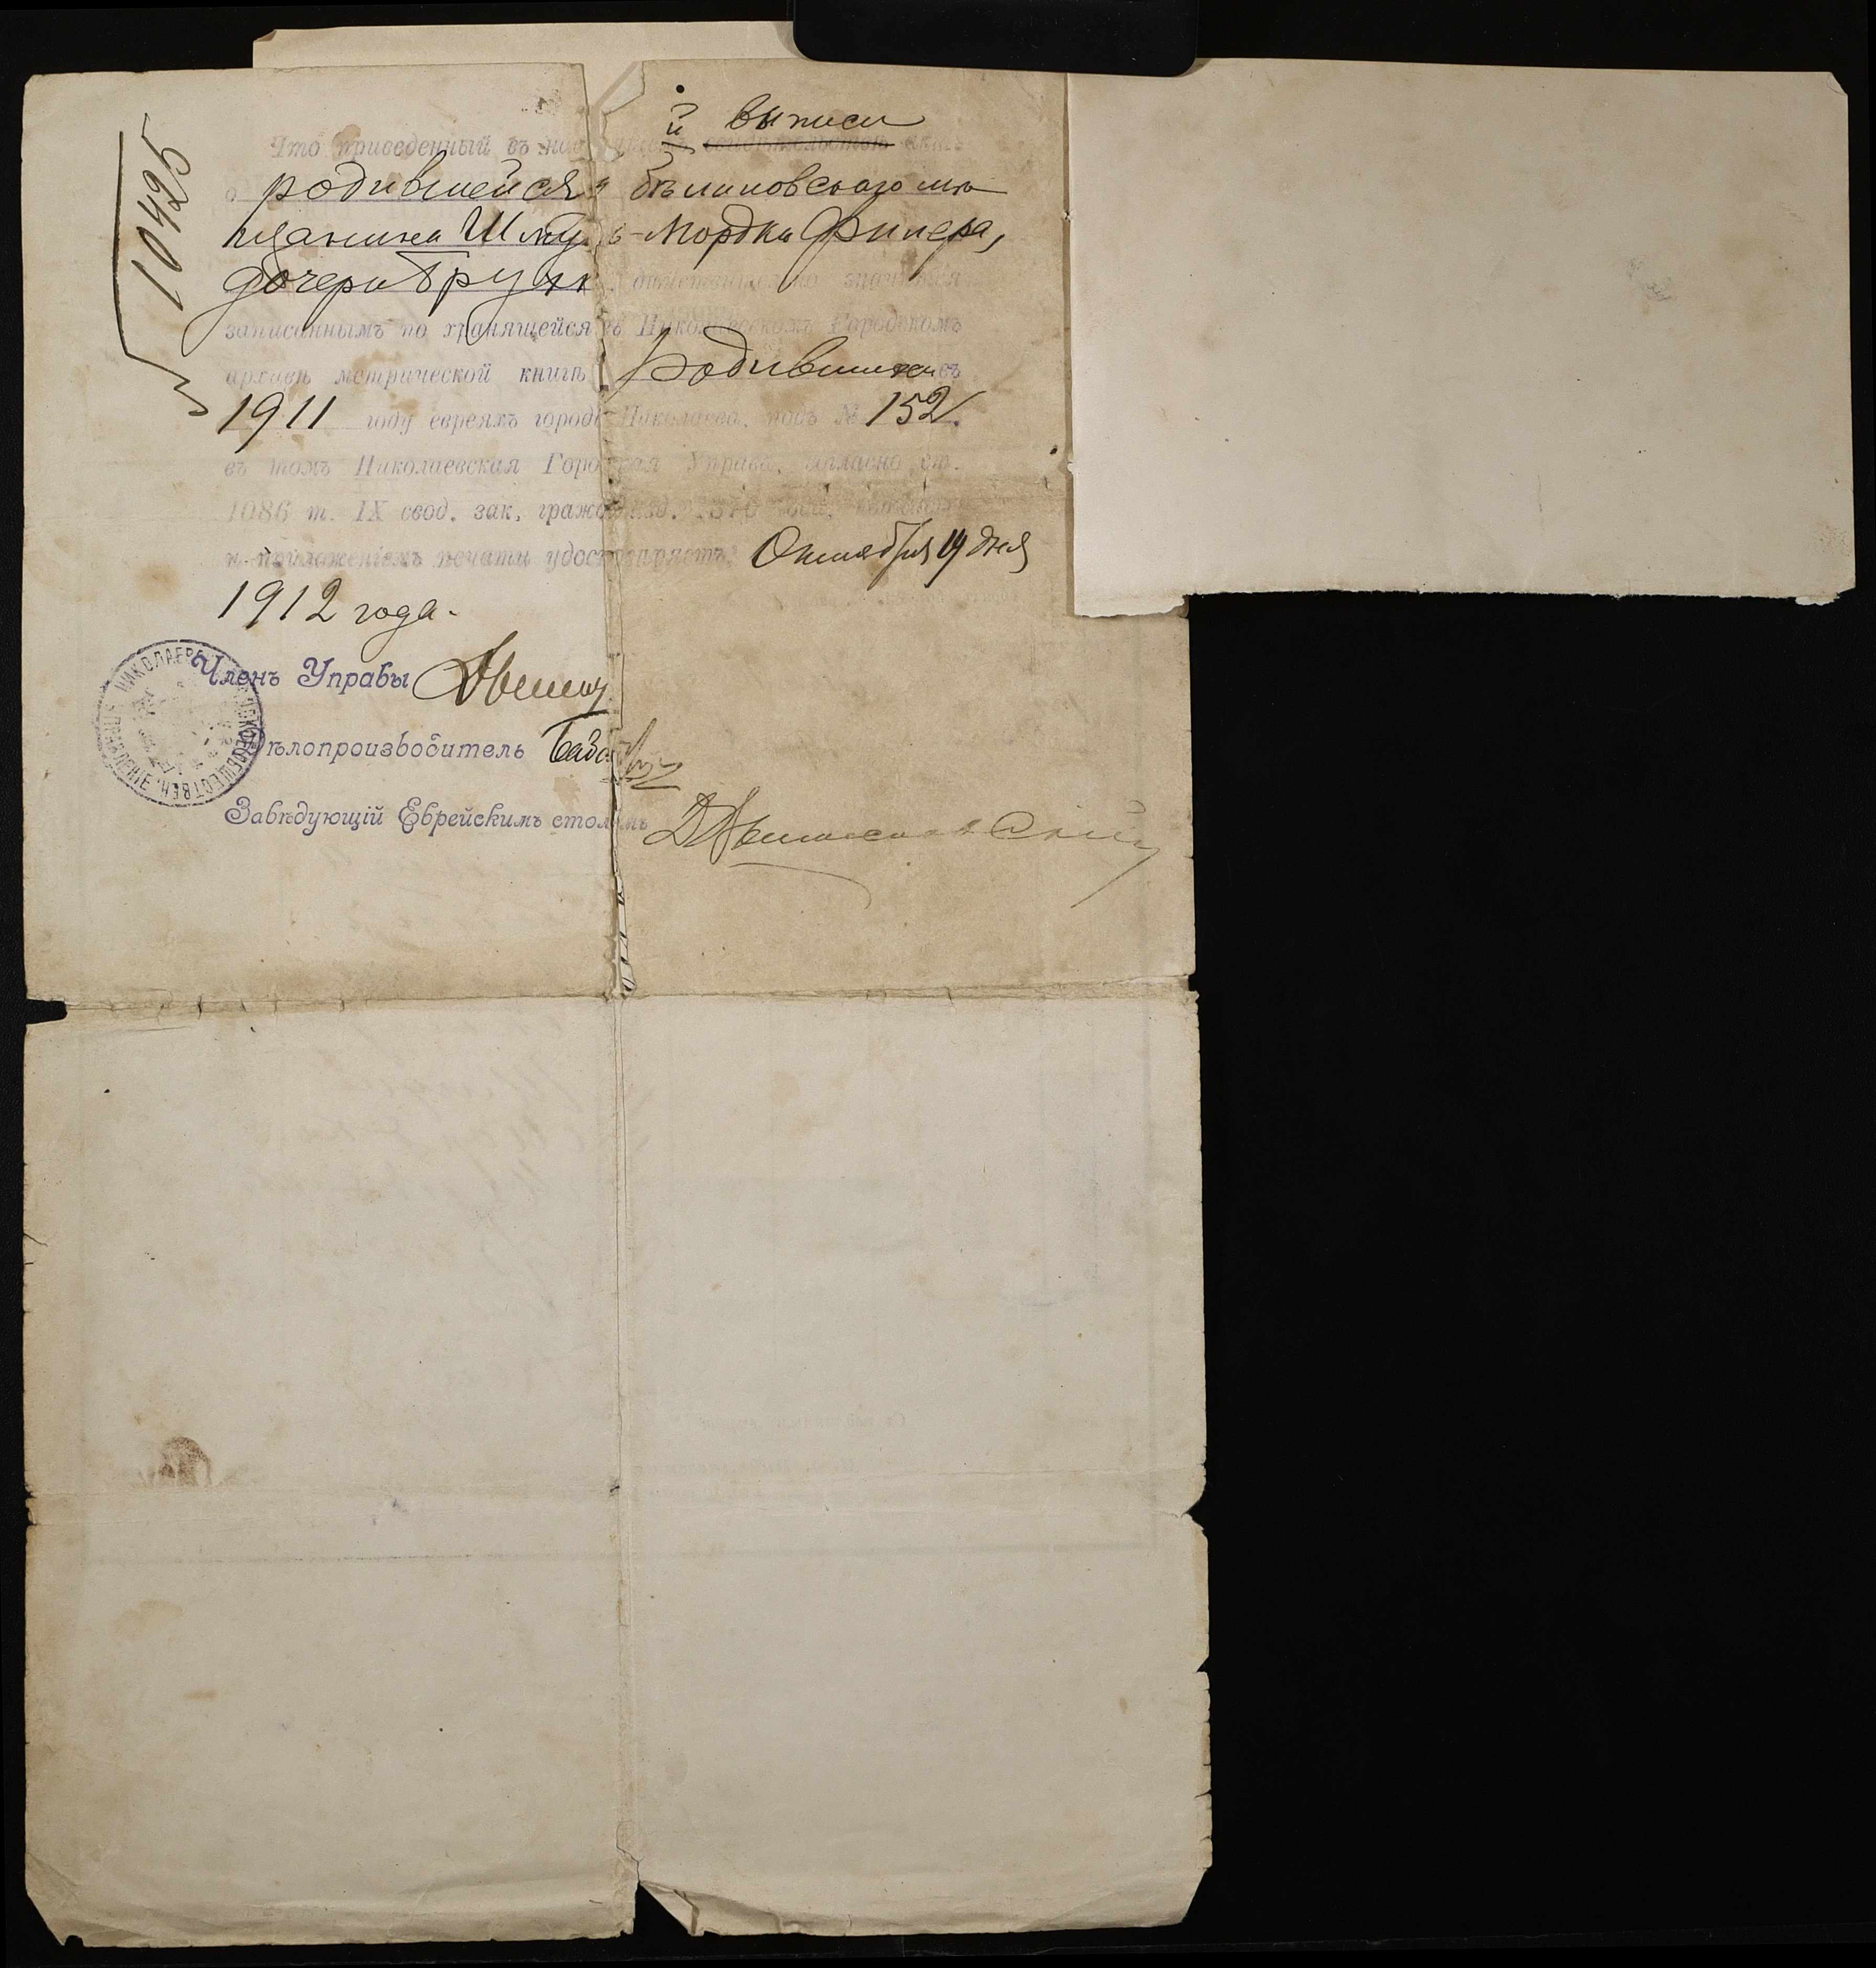 10425
й выписи
Что приведенный въ
родившейся бѣлиловскаго мѣ
щанина Шмуль-Мордка Финера,
дочери
записаннымъ по хранящейся въ Николаевскомъ Городскомъ
архивѣ метрической книгѣ родившихся въ
1911 году евреямъ города Николаева, подъ № 152.
въ томъ Николаевская Городская Управа, согласно ст.
1086 т. IX свод. зак. гражд. изд. 1876
и приложеніемъ печати удостовѣряетъ. Октября 19 дня
1912 года.
Членъ Управы
Дѣлопроизводитель
Завѣдующій Еврейскимъ столомъ